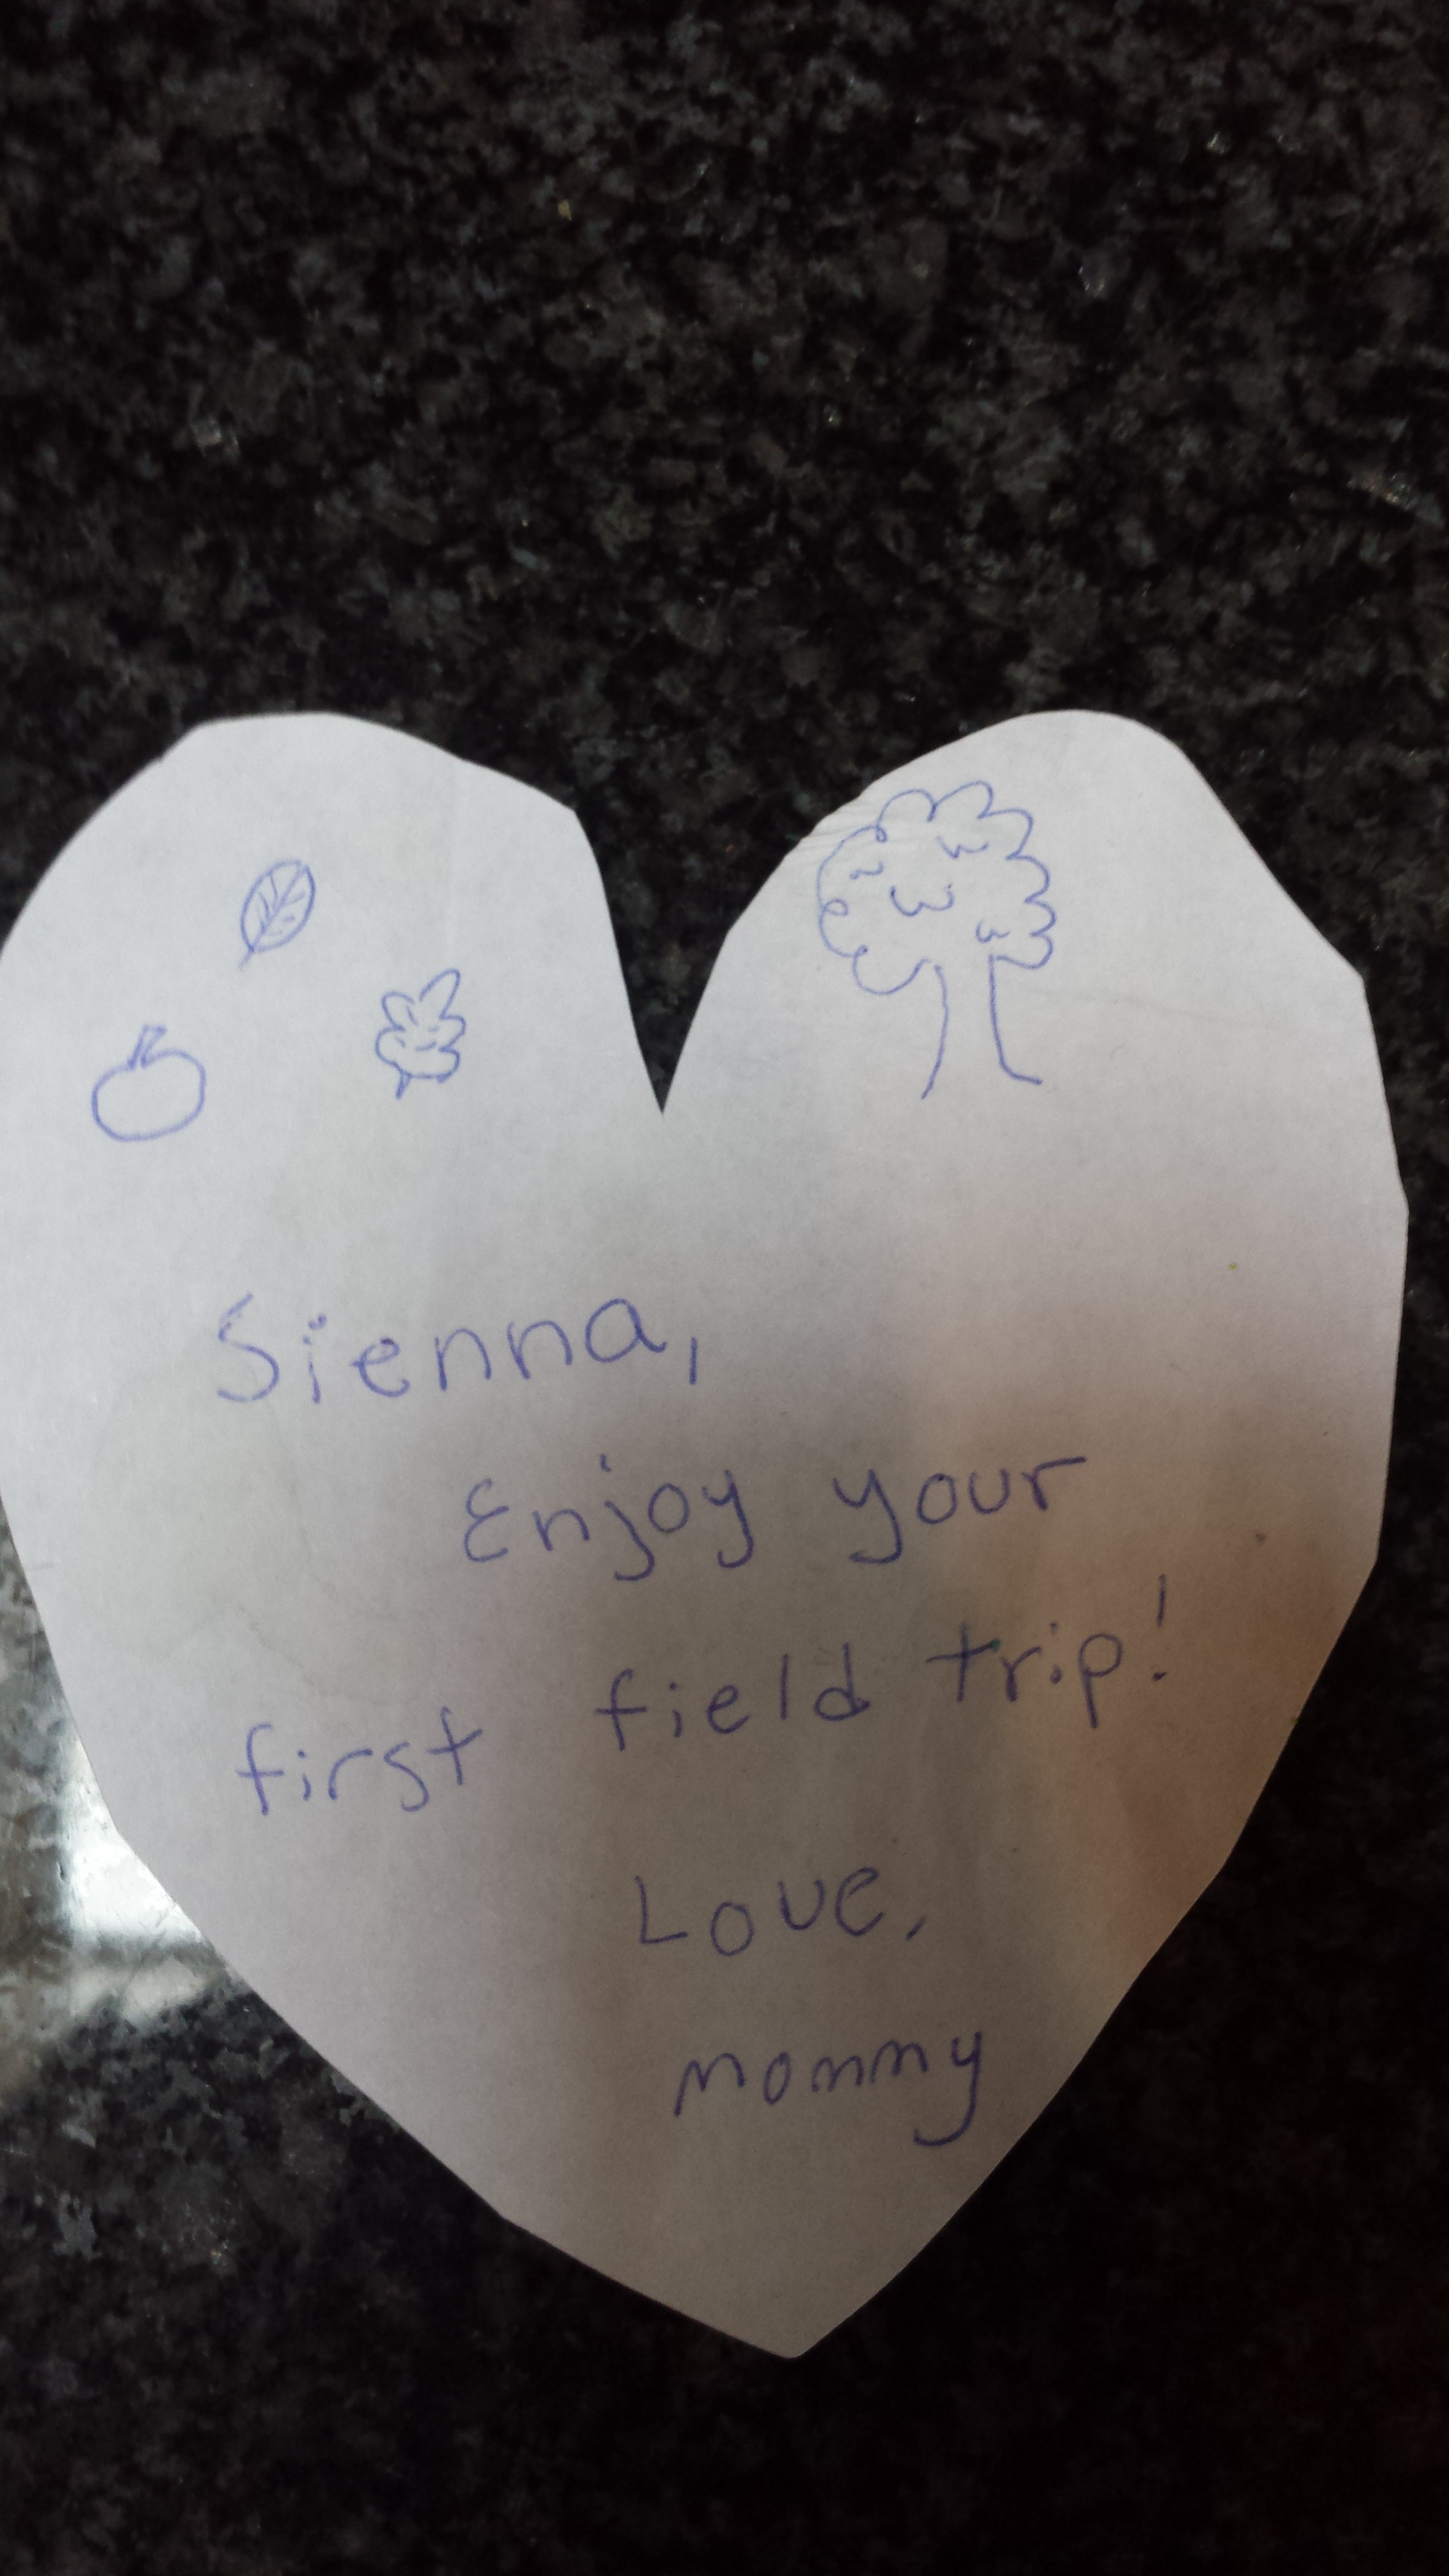 Sienna,
Enjoy your
first field trip!
Love,
Mommy